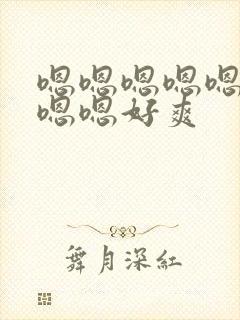 嗯嗯嗯嗯嗯
嗯嗯好爽
舞月深红